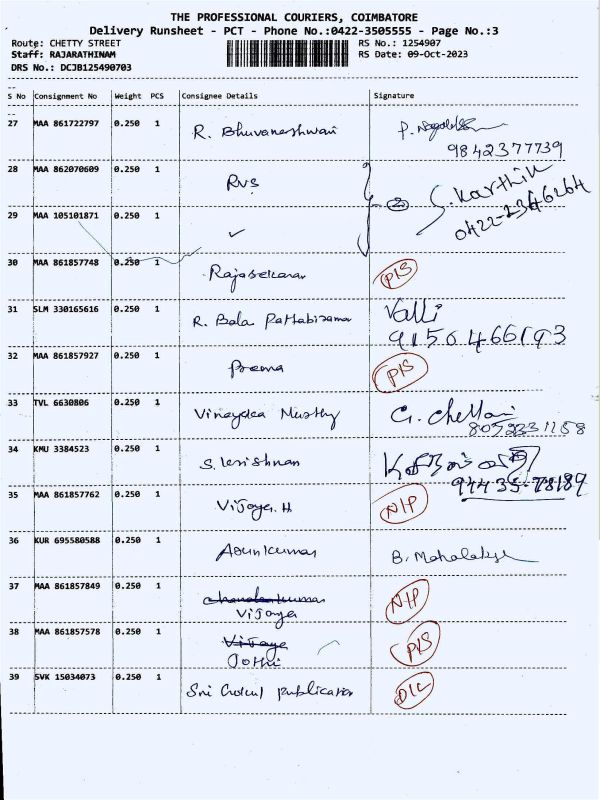 THE PROFESSIONAL COURIERS, COIMBATORE
Delivery Runsheet - PCT - Phone No.:0422-3505555 - Page No.:3
Route: CHETTY STREET RS No.: 1254907
Staff: RAJARATHINAM RS Date: 09-Oct-2023
DRS No.: DCJB125490703
S No Consignment No Weight PCS Consignee Details Signature
27 MAA 861722797 0.250 1 R. Bhuvaneshwari
9842377739
28 MAA 862070609 0.250 1 RVS S. Karthik
29 MAA 105101871 0.250 1 ✓ 2 0422-2346264
30 MAA 861857748 0.250 1 Rajasekaran P/S
31 SLM 330165616 0.250 1 R. Bala Pattabirama Valli
9150466193
32 MAA 861857927 0.250 1 Prema P/S
33 TVL 6630806 0.250 1 Vinaydea Murthy G. Chellam
8072331158
34 KMU 3384523 0.250 1 S. Krishnan
94435-78189
35 MAA 861857762 0.250 1 Vijaya. H N/P
36 KUR 695580588 0.250 1 Arunkumar B. Mahalakshmi
37 MAA 861857849 0.250 1 Chandrakumar N/P
Vijaya
38 MAA 861857578 0.250 1 Vijaya P/S
Jothi
39 SVK 15034073 0.250 1 Sri Publication D/L